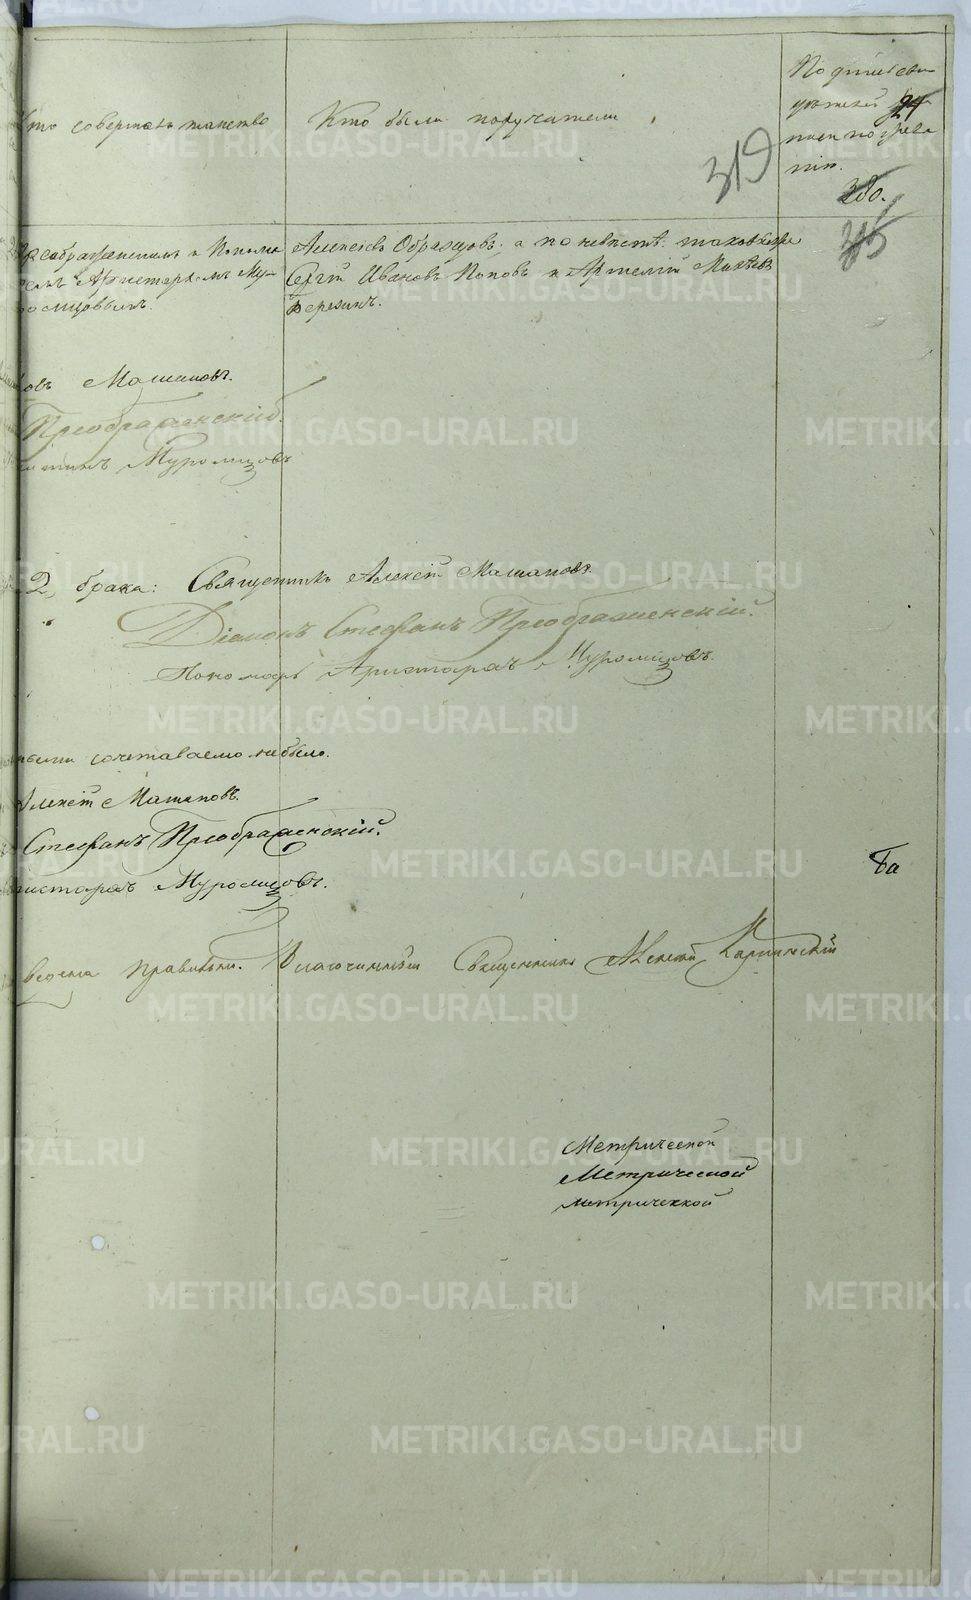 Кто совершалъ таинство
Кто были поручатели
Подпись сви-
319
Преображенскимъ и Понома
ремъ Аристархомъ Му-
ромцовымъ.
Алексѣевъ Образцовъ; а по невѣстѣ: таковы же
Сергѣй Ивановъ Поповъ и Артемій
Березинъ.
Машановъ.
Преображенскій
Муромцовъ
2, брака: Священникъ Алексѣй Машановъ
Діаконъ Стефанъ Преображенскій.
Пономарь Аристархъ Муромцовъ.
сочетаваемо небыло.
Алексѣй Машановъ.
Стефанъ Преображенскій.
Аристархъ Муромцовъ.
Ба
ведена правильно. Благочинный Священникъ Алексѣй Карпинскій
Метрической
Метрической
метрической
METRIKI.GASO-URAL.RU